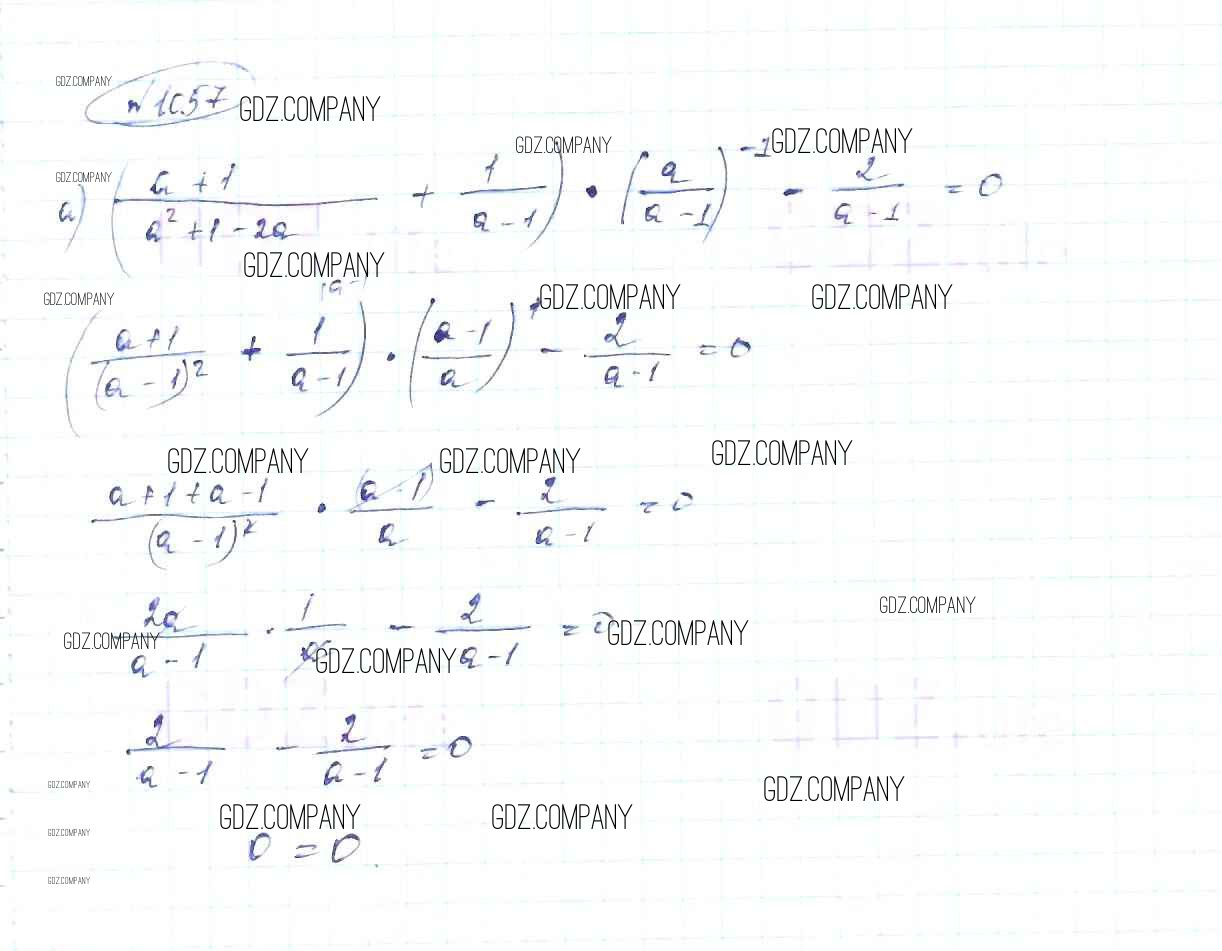 GDZ.COMPANY
№1057 GDZ.COMPANY
GDZ.COMPANY GDZ.COMPANY
GDZ.COMPANY
а) ( (a + 1)/(a² + 1 - 2a) + 1/(a - 1) ) · ( a/(a - 1) )⁻¹ - 2/(a - 1) = 0
GDZ.COMPANY
(a -
GDZ.COMPANY GDZ.COMPANY GDZ.COMPANY
( (a + 1)/(a - 1)² + 1/(a - 1) ) · ( (a - 1)/a )¹ - 2/(a - 1) = 0
GDZ.COMPANY GDZ.COMPANY GDZ.COMPANY
(a + 1 + a - 1)/(a - 1)² · (a - 1)/a - 2/(a - 1) = 0
GDZ.COMPANY
2a/(a - 1) · 1/a - 2/(a - 1) = 0
GDZ.COMPANY GDZ.COMPANY GDZ.COMPANY
2/(a - 1) - 2/(a - 1) = 0
GDZ.COMPANY GDZ.COMPANY
GDZ.COMPANY GDZ.COMPANY
GDZ.COMPANY
0 = 0
GDZ.COMPANY